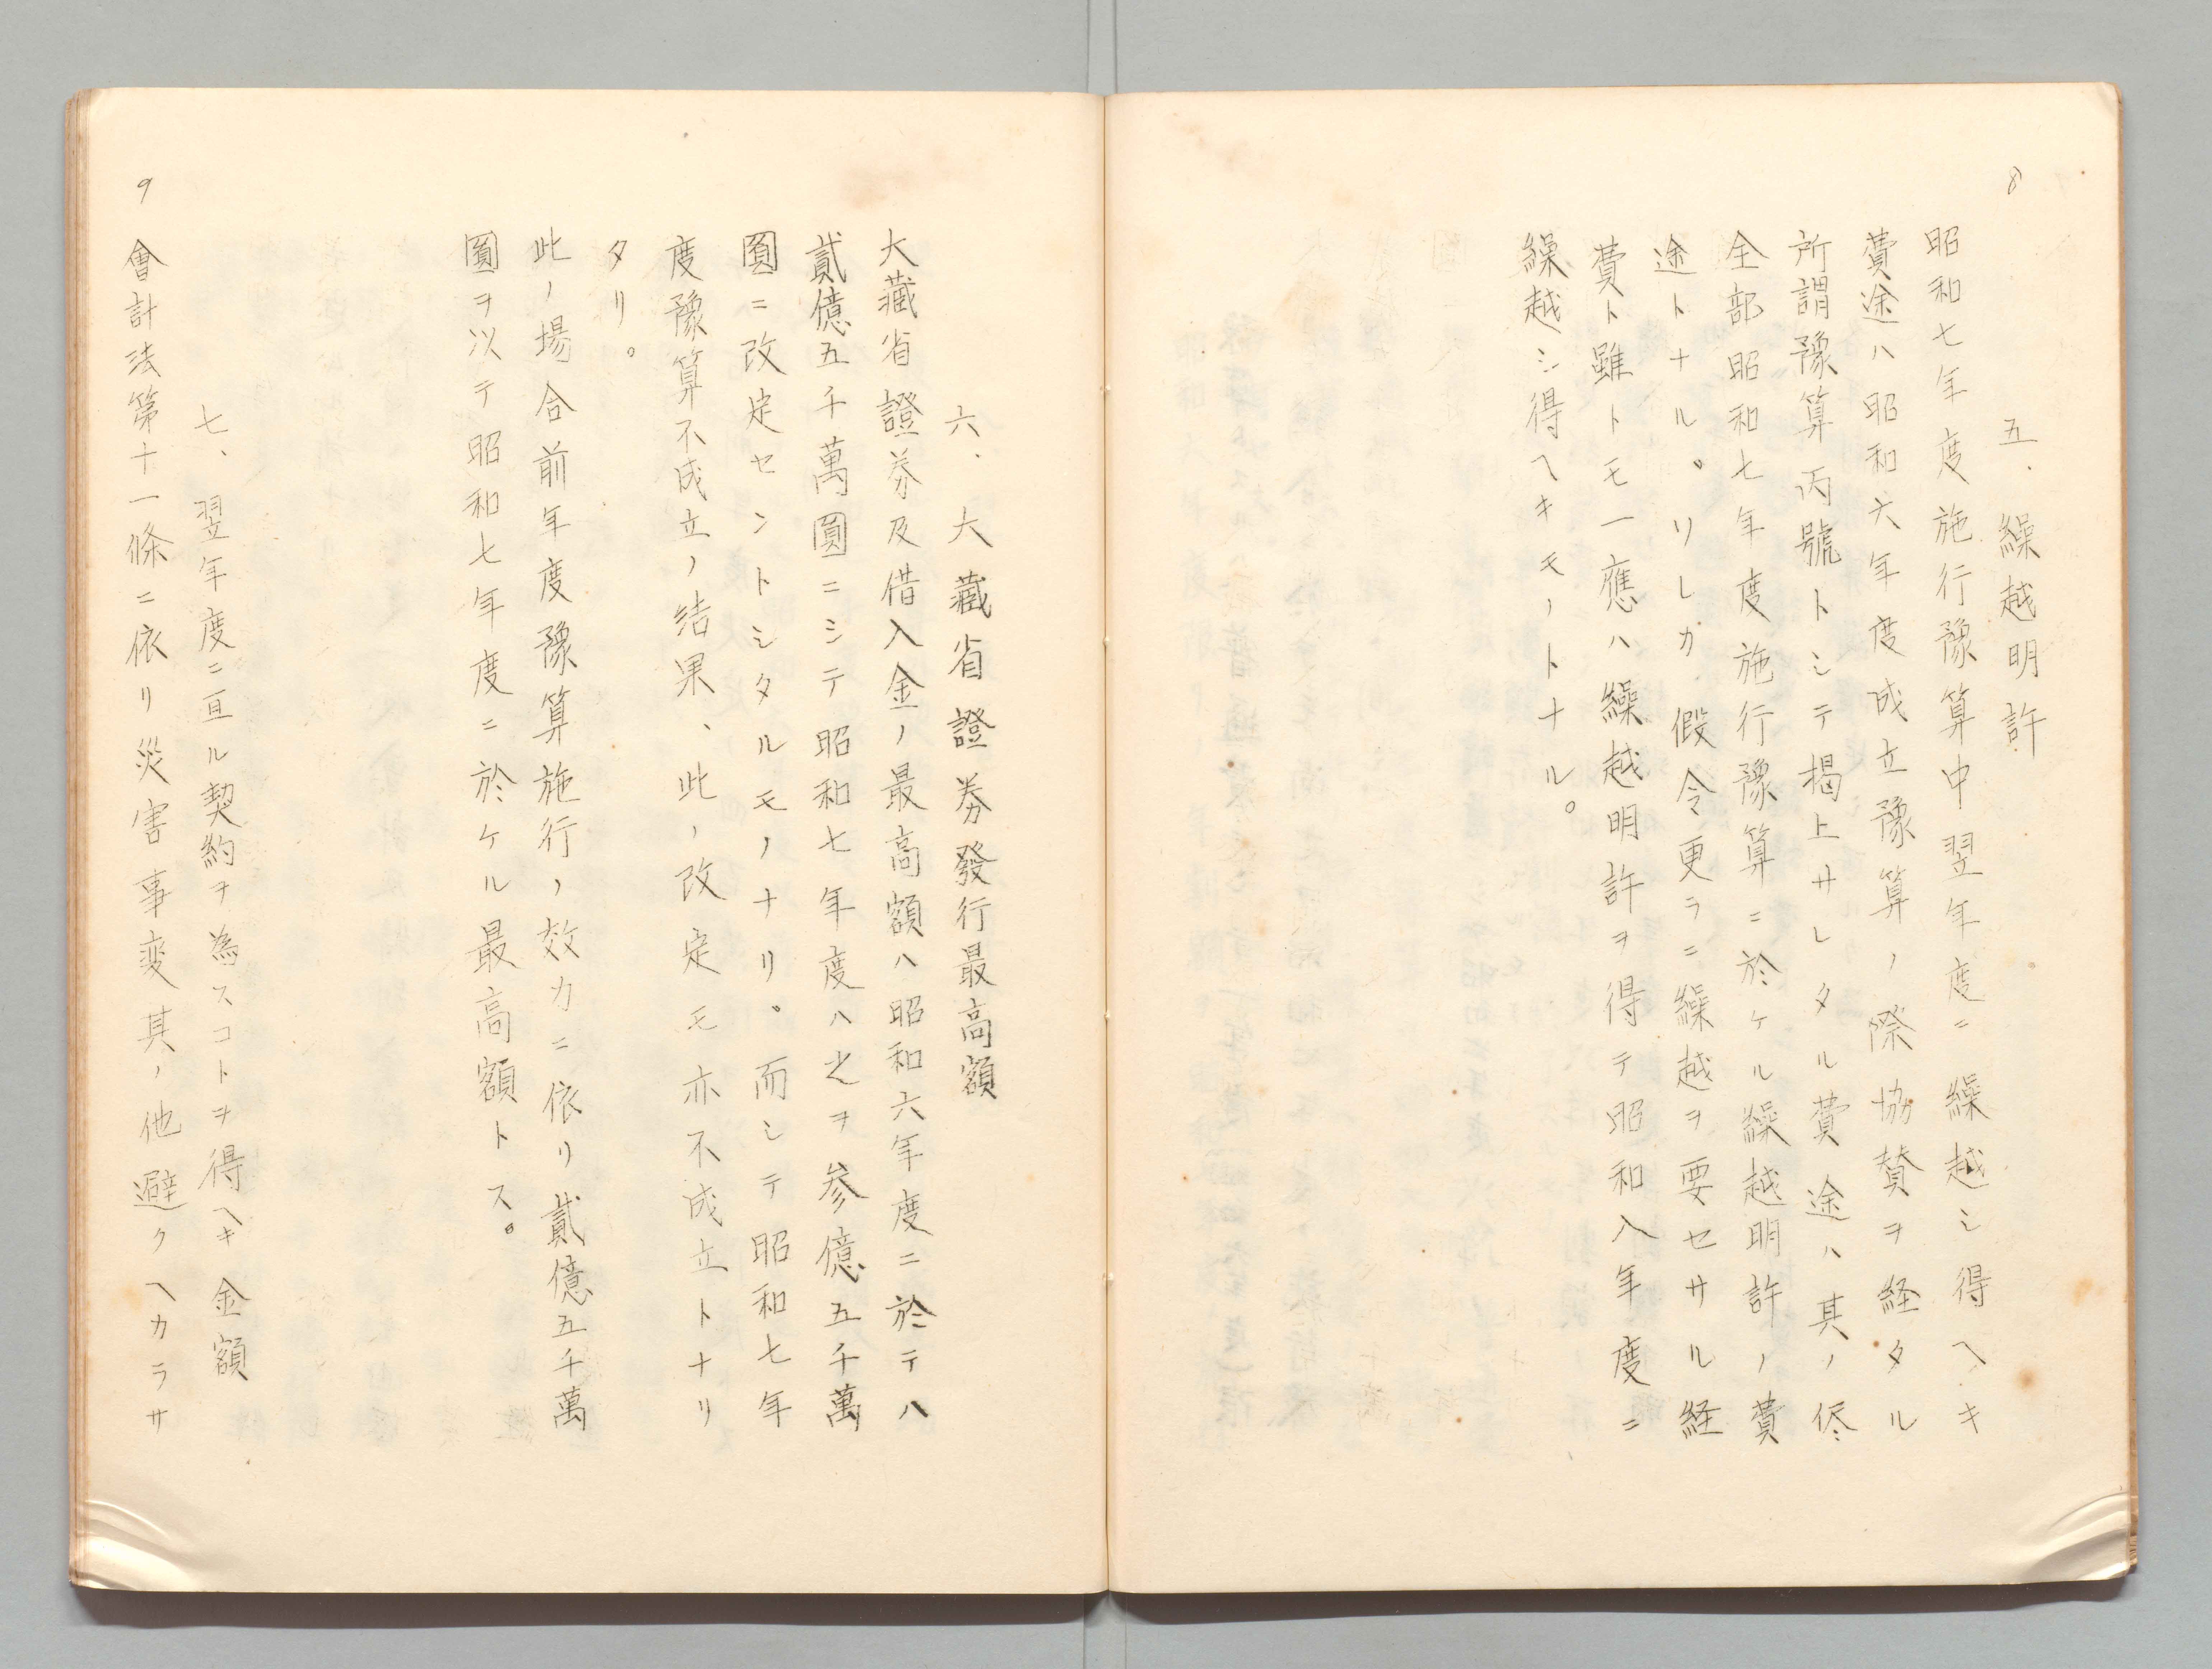 8
五、繰越明許
昭和七年度施行豫算中翌年度ニ繰越シ得ヘキ
費途ハ昭和六年度成立豫算ノ際協賛ヲ経タル
所謂豫算丙號トシテ掲上サレタル費途ハ其ノ侭
全部昭和七年度施行豫算ニ於ケル繰越明許ノ費
途トナル。サレカ假令更ラニ繰越ヲ要セサル経
費ト雖トモ一應ハ繰越明許ヲ得テ昭和八年度ニ
繰越シ得ヘキモノトナル。
六、大藏省證券發行最高額
大藏省證券及借入金ノ最高額ハ昭和六年度ニ於テハ
貳億五千萬圓ニシテ昭和七年度ハ之ヲ参億五千萬
圓ニ改定セントシタルモノナリ。而シテ昭和七年
度豫算不成立ノ結果、此ノ改定モ亦不成立トナリ
タリ。
此ノ場合前年度豫算施行ノ效力ニ依リ貳億五千萬
圓ヲ以テ昭和七年度ニ於ケル最高額トス。
七、翌年度ニ亘ル契約ヲ為スコトヲ得ヘキ金額
9
會計法第十一條ニ依リ災害事変其ノ他避クヘカラサ